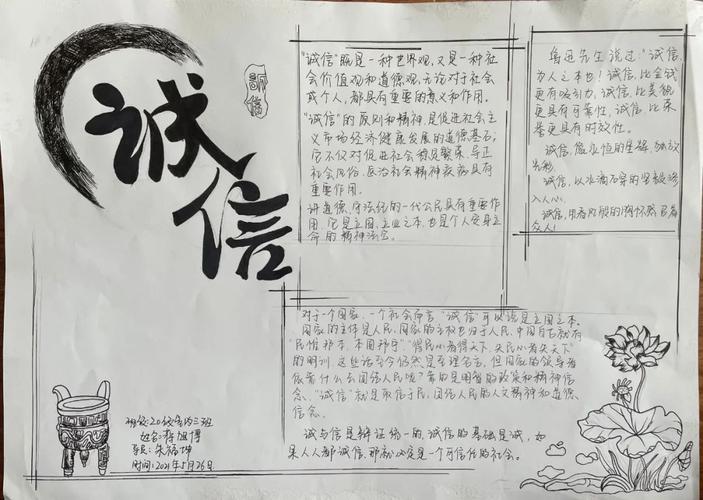 诚信
诚信
"诚信"既是一种世界观,又是一种社
会价值观和道德观,无论对于社会
或个人,都具有重要的意义和作用。
"诚信"的原则和精神,是促进社会主
义市场经济健康发展的道德基石;
它不仅对促进社会稳定繁荣、导正
社会风俗、医治社会精神疾病具有
重要作用。
讲道德、守法纪的一代公民具有重要作
用。它是立国、立业之本,也是个人安身立
命的精神法。
鲁迅先生说过:"诚信
为人之本也!诚信,比金钱
更有吸引力,诚信,比美貌
更具有可靠性,诚信,比荣
誉更具有时效性。
诚信,能
出彩
诚信,以水滴石穿的坚毅渗
入人心
诚信,用
众人!
对于一个国家、一个社会而言,"诚信"可以说是立国之本。
国家的主体是人民,国家的主权也归于人民,中国自古就有
"民惟邦本,本固邦宁""得民心者得天下,失民心者失天下"
的明训,这些话至今仍然是至理名言,但国家的领导者
依靠什么去团结人民呢?靠的是用智的政策和精神信
念。"诚信"就是取信于民,团结人民的人文精神和道德
信念。
诚与信是辩证统一的,诚信的基础是诚,如
果人人都诚信,那就必定是一个可信任的社会。
班级:20级 三班
姓名: 旭博
导员:朱 坤
时间:2021年5月26日